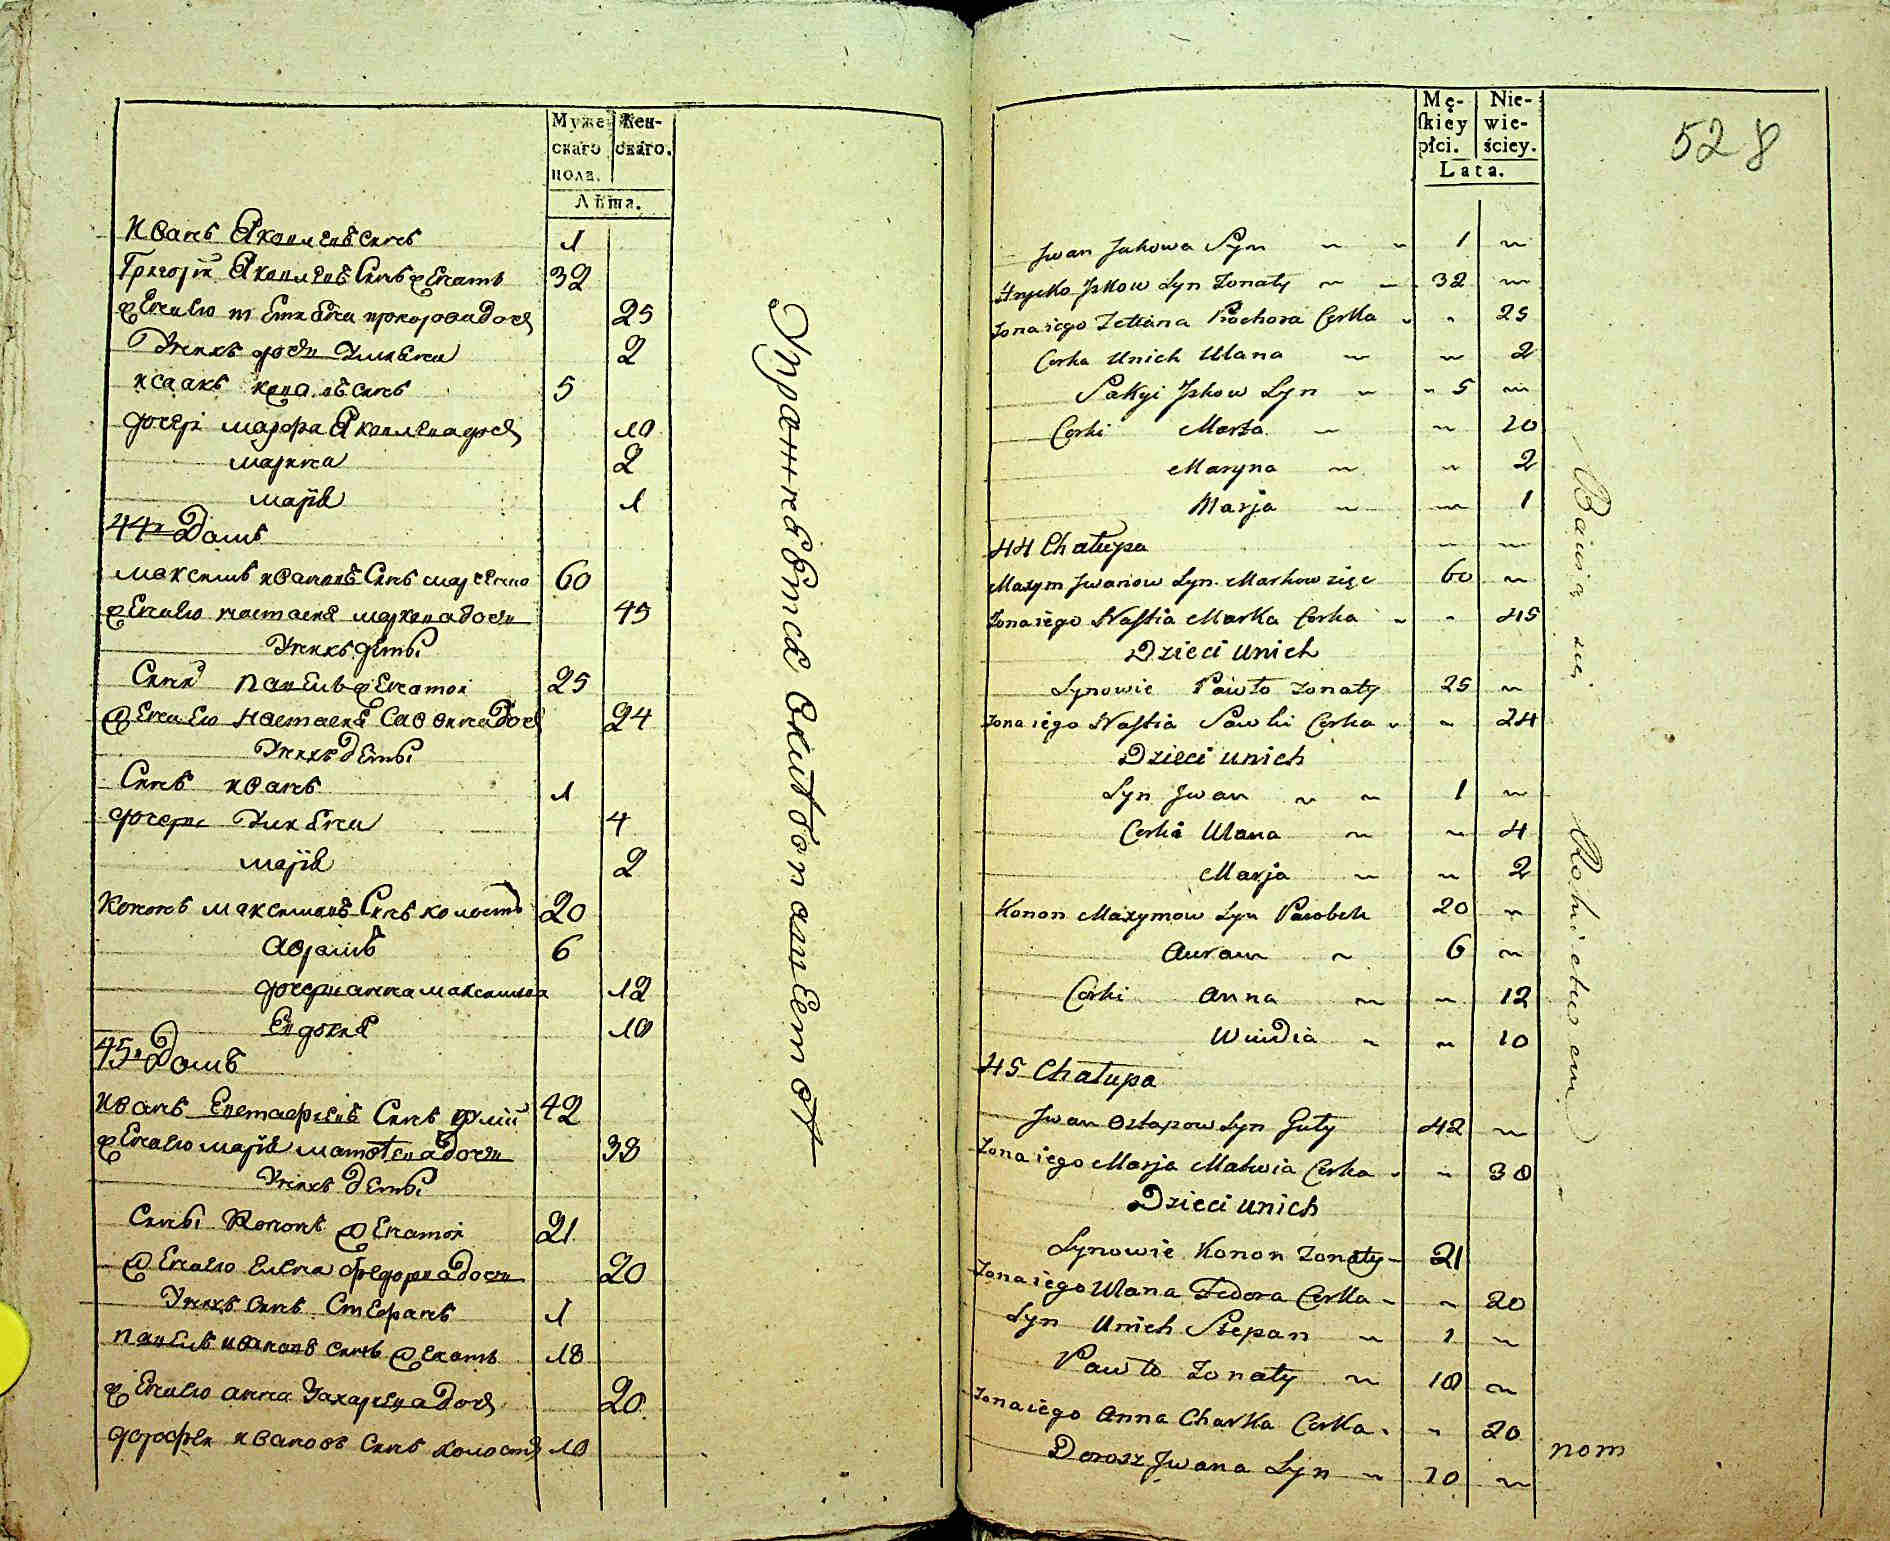 Муже
скаго
пола.
Жен-
скаго.
Лѣта.
Иванъ Яковлевъ Сынъ 1
Григорій Яковлевъ Сынъ женатъ 32
жена ево Прохорова дочь 25
У нихъ дочь Улияна 2
Исаакъ Сынъ 5
дочери Марфа Яковлева дочь 10
Марина 2
Марія 1
44й Домъ
Максимъ Ивановъ Сынъ 60
жена ево Настасия Маркова дочь 45
У нихъ дѣти
Сыны Павелъ женатой 25
жена ево Настасия Саввина дочь 24
У нихъ дѣти
Сынъ Иванъ 1
дочери Улияна 4
Марія 2
Кононъ Максимовъ Сынъ холостъ 20
Аврамъ 6
дочери Анна Максимова 12
Евдокия 10
45й Домъ
Иванъ Евстафиевъ Сынъ 42
жена ево Марія Матвѣева дочь 38
У нихъ дѣти
Сыны Кононъ женатой 21
жена ево Елена Федорова дочь 20
У нихъ Сынъ Стефанъ 1
Павелъ Ивановъ Сынъ женатъ 18
жена ево Анна Захарьева дочь 20
Дорофей Ивановъ Сынъ холостъ 10
Упражняются
Mę-
skiey
płci.
Nie-
wie-
ściey.
Lata.
528
Jwan Jakowa Syn ~ ~ 1 ~
Hrycko Jskow Syn Zonaty ~ ~ 32 ~
Zona iego Tettana Prochora Corka ~ ~ 25
Corka Unich Ulana ~ ~ 2
Jskow Syn ~ ~ 5 ~
Corki Marta ~ ~ 10
Maryna ~ ~ 2
Marja ~ ~ 1
44 Chałupa ~ ~
Maxym Jwanow Syn Markow zięc 60 ~
Zona iego Nastia Marka Corka ~ ~ 45
Dzieci Unich
Synowie Pawło Zonaty 25 ~
Zona iego Nastia Sawki Corka ~ ~ 24
Dzieci unich
Syn Jwan ~ ~ 1 ~
Corki Ulana ~ ~ 4
Marja ~ ~ 2
Konon Maxymow Syn Parobek 20 ~
Awram ~ 6 ~
Corki Anna ~ ~ 12
Wiudia ~ ~ 10
45 Chałupa
Jwan Ostapow Syn Guty 42 ~
Zona iego Marja Matwia Corka ~ ~ 38
Dzieci unich
Synowie Konon Zonaty ~ 21
Zona iego Ulana Fedora Corka ~ ~ 20
Syn Unich Stepan ~ 1 ~
Pawło Zonaty ~ 18 ~
Zona iego Anna Charka Corka ~ ~ 20
Dorosz Jwana Syn ~ 10 ~
Bawią się Rolnictwem
пот